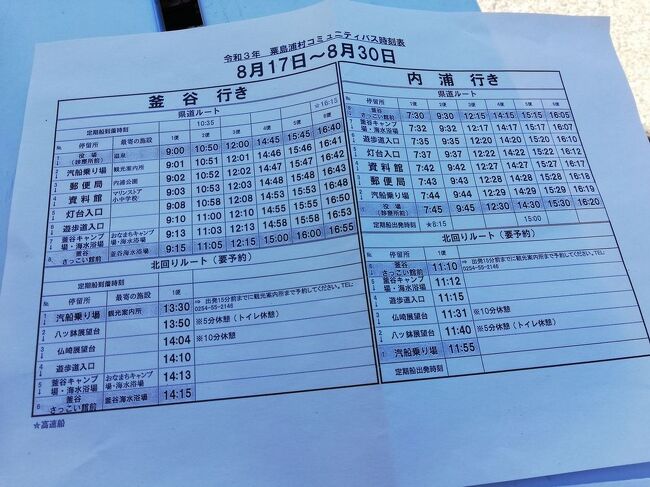 令和3年 粟島浦村コミュニティバス時刻表
8月17日～8月30日
釜谷 行き
県道ルート
定期船到着時刻 10:35 ★16:15
№ 停留所 最寄の施設 1便 2便 3便 4便 5便 6便
役場(診療所前) 温泉 9:00 10:50 12:00 14:45 15:45 16:40
汽船乗り場 観光案内所 9:01 10:51 12:01 14:46 15:46 16:41
郵便局 内浦公園 9:02 10:52 12:02 14:47 15:47 16:42
資料館 マリンストア 小中学校 9:03 10:53 12:03 14:48 15:48 16:43
灯台入口 9:10 11:00 12:10 14:55 15:55 16:50
遊歩道入口 9:11 11:01 12:11 14:56 15:56 16:51
釜谷キャンプ場・海水浴場 おなまちキャンプ場・海水浴場 9:13 11:03 12:13 14:58 15:58 16:53
釜谷 さっこい館前 釜谷海水浴場 9:15 11:05 12:15 15:00 16:00 16:55
北回りルート（要予約）
定期船到着時刻
№ 停留所 最寄の施設 1便
汽船乗り場 観光案内所 13:30 ⇒ 出発15分前までに観光案内所まで予約してください。TEL:0254-55-2146
八ッ鉢展望台 13:50 ※5分休憩（トイレ休憩）
仏崎展望台 14:04 ※10分休憩
遊歩道入口 14:10
釜谷キャンプ場・海水浴場 おなまちキャンプ場・海水浴場 14:13
釜谷 さっこい館前 釜谷海水浴場 14:15
★高速船
内浦 行き
県道ルート
№ 停留所 1便 2便 3便 4便 5便 6便
釜谷 さっこい館前 7:30 9:30 12:15 14:15 15:15 16:05
釜谷キャンプ場・海水浴場 7:32 9:32 12:17 14:17 15:17 16:07
遊歩道入口 7:35 9:35 12:20 14:20 15:20 16:10
灯台入口 7:37 9:37 12:22 14:22 15:22 16:12
資料館 7:42 9:42 12:27 14:27 15:27 16:17
郵便局 7:43 9:43 12:28 14:28 15:28 16:18
汽船乗り場 7:44 9:44 12:29 14:29 15:29 16:19
役場(診療所前) 7:45 9:45 12:30 14:30 15:30 16:20
定期船出発時刻 ★8:15 15:00
北回りルート（要予約）
№ 停留所 1便
釜谷 さっこい館前 11:10 ⇒ 出発15分前までに観光案内所まで予約してください。TEL:0254-55-2146
釜谷キャンプ場・海水浴場 11:12
遊歩道入口 11:15
仏崎展望台 11:31 ※10分休憩
八ッ鉢展望台 11:40 ※5分休憩（トイレ休憩）
汽船乗り場 11:55
定期船出発時刻